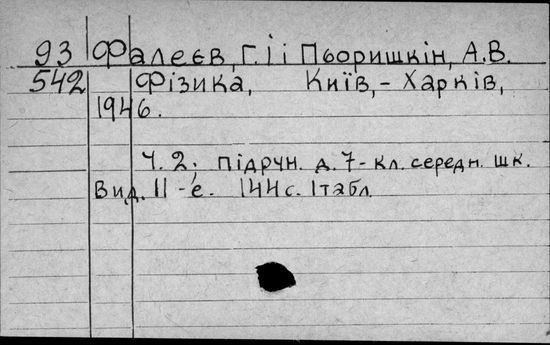 93 Фалеєв, Г.І і Пьоришкін, А.В.
542 Фізика, Київ,-Харків,
1946.
Ч.2; підрчн. д. 7-кл. середн. шк.
Вид. 11-е. 144с. 1табл.